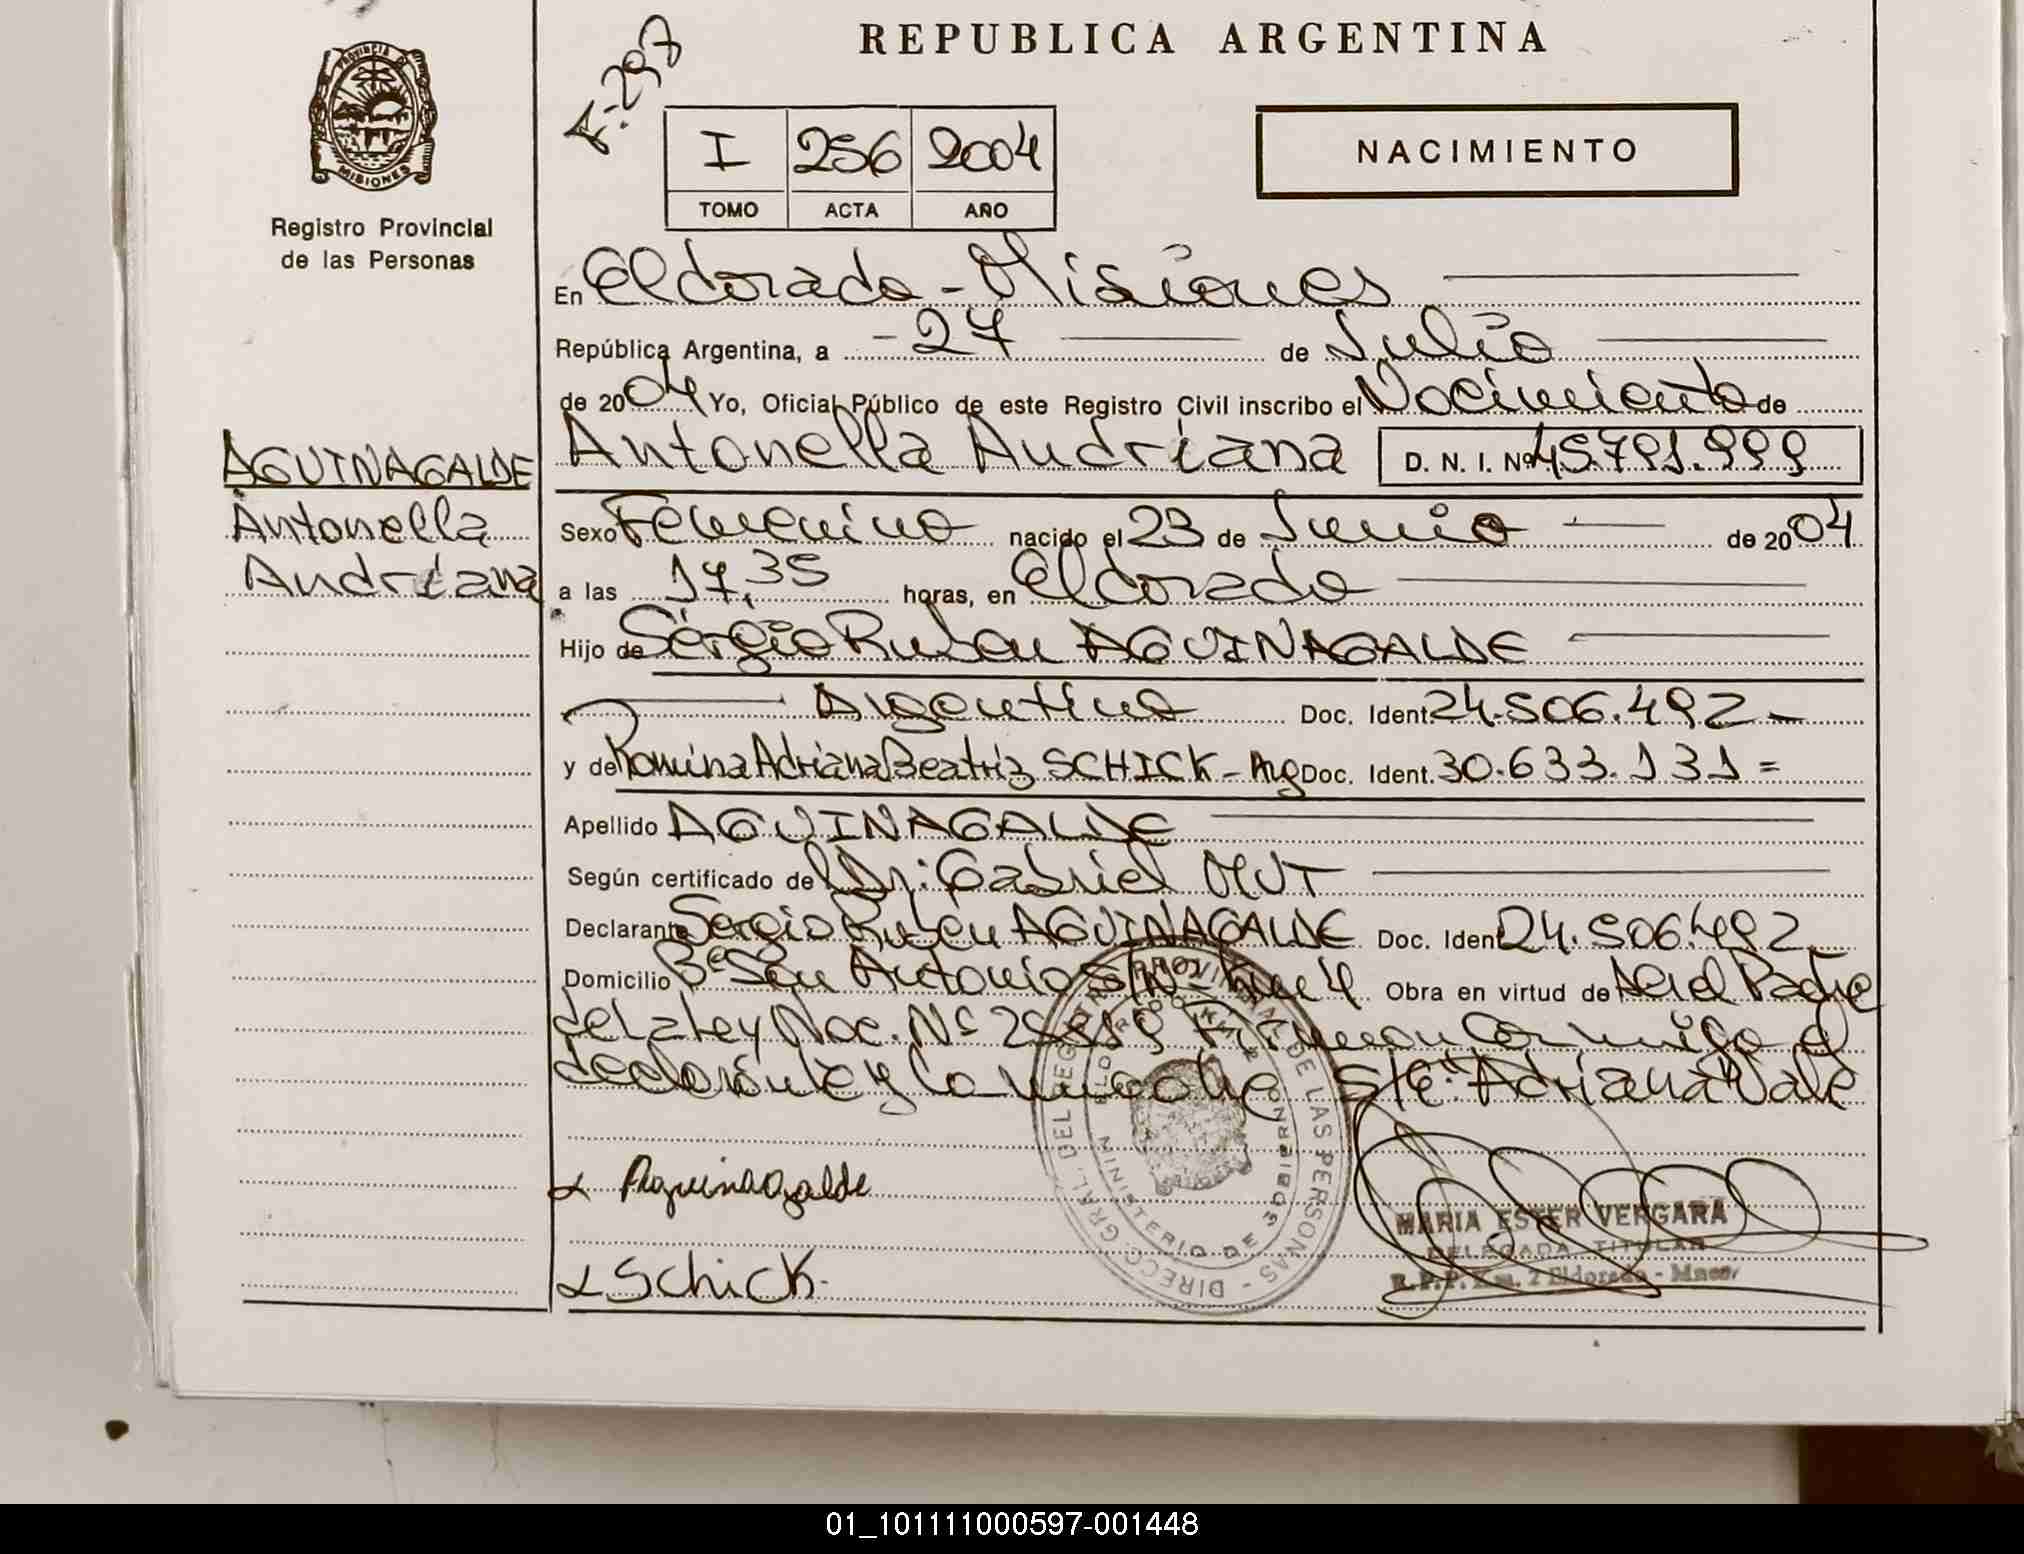 REPUBLICA ARGENTINA
PROVINCIA DE
MISIONES
Registro Provincial
de las Personas
F-297
I 256 2004
TOMO ACTA AÑO
NACIMIENTO
En Eldorado - Misiones
República Argentina, a - 27 de Julio
de 2004 Yo, Oficial Público de este Registro Civil inscribo el Nacimiento de
AGUINAGALDE
Antonella
Audriana
Antonella Audriana D. N. I. Nº 45.791.999
Sexo Femenino nacido el 23 de Junio de 2004
a las 17,35 horas, en Eldorado
Hijo de Sergio Ruben AGUINAGALDE
Argentino Doc. Ident. 24.506.492 -
y de Romina Adriana Beatriz SCHICK - Arg Doc. Ident. 30.633.131 =
Apellido AGUINAGALDE
Según certificado de Dr: Gabriel MUT
Declarante Sergio Ruben AGUINAGALDE Doc. Ident. 24.506.492
Domicilio Bº San Antonio S/Nº - Km 4 Obra en virtud de Ser el Padre
de La Ley Nac. Nº Firman conmigo el
declarante y la madre S/E: Adriana Vale
Aguinagalde
Schick.
DIRECC. GRAL. DEL REGISTRO PROVINCIAL DE LAS PERSONAS -
MINISTERIO DE GOBIERNO
MARIA ESTER VERGARA
DELEGADA TITULAR
R.P.P. Km. 2 Eldorado - Mnes.
01_101111000597-001448